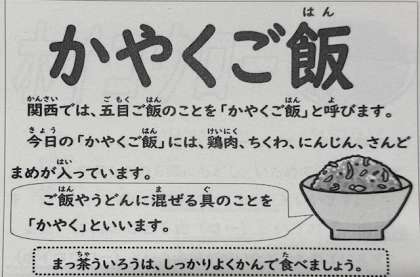 かやくご飯
関西では、五目ご飯のことを「かやくご飯」と呼びます。
今日の「かやくご飯」には、鶏肉、ちくわ、にんじん、さんど
まめが入っています。
ご飯やうどんに混ぜる具のことを
「かやく」といいます。
まっ茶ういろうは、しっかりよくかんで食べましょう。